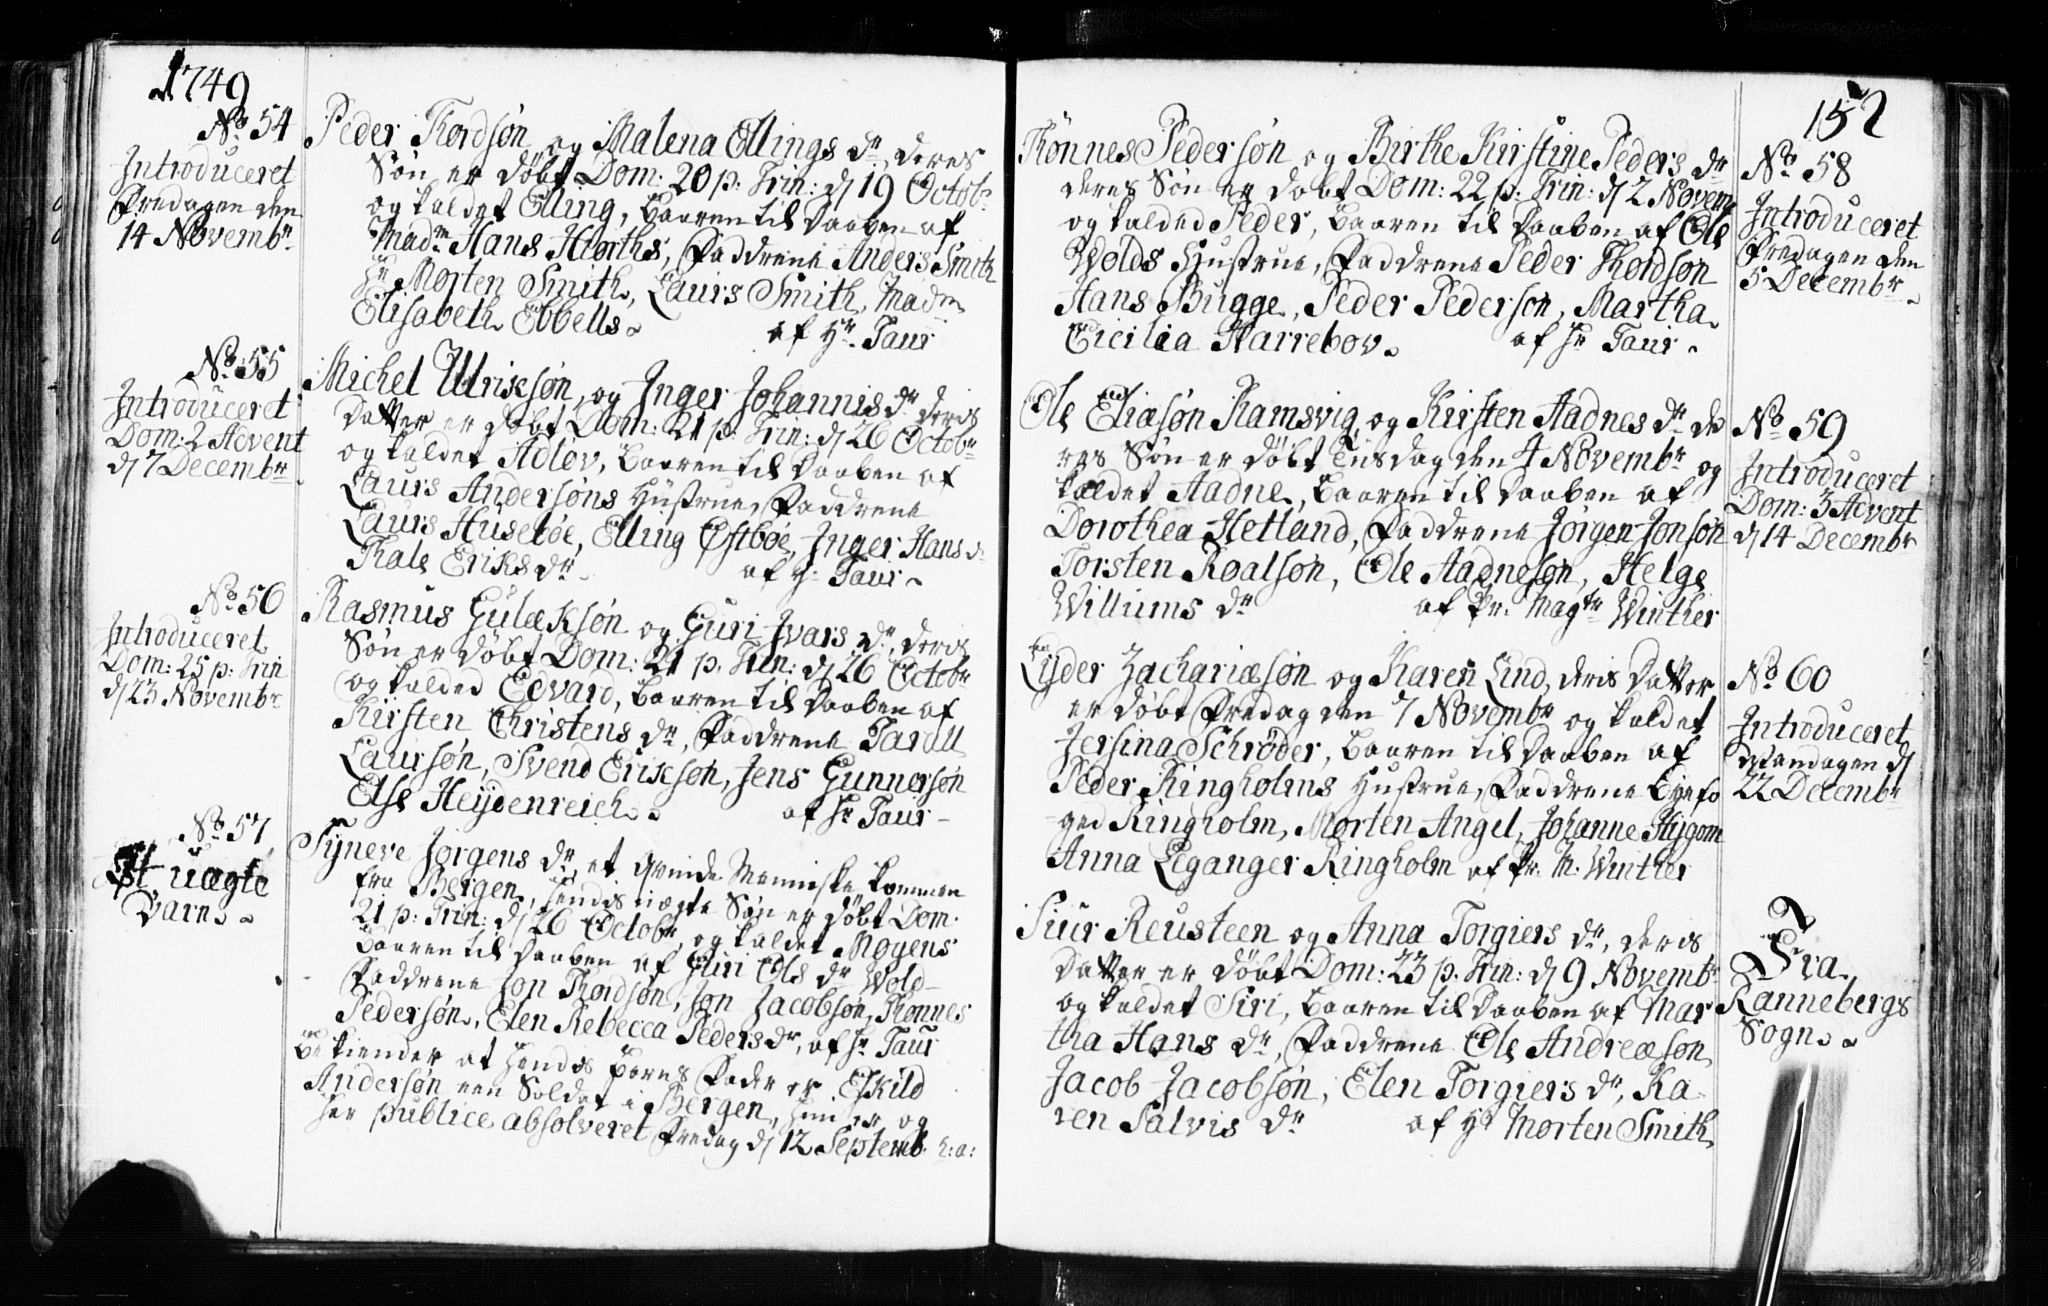 1749
No 54
Introduceret
Fredagen den
14 Novembr
Peder Thordsøn og Malena Ellings dr, deres
Søn er døbt Dom: 20 p: Trin: d/ 19 Octobr
og kaldet Elling, baaren til Daaben af
Madm Hans Hiorths, Faddrene Anders Smith
Hr Morten Smith, Laurs Smith, Madm
Elisabeth Ebbells. af Hr Taur
No 55
Introduceret
Dom: 2 Advent
d/ 7 Decembr
Michel Ulriksøn, og Inger Johannis dr deres
Datter er døbt Dom: 21 p: Trin: d/ 26 Octobr
og kaldet Adlov, baaren til Daaben af
Laurs Andersøns Hustrue, Faddrene
Laurs Huseböe, Elling Östböe, Inger Hans dr
Thale Eriks dr af Hr Taur
No 56
Introduceret
Dom: 25 p: Trin
d/ 23 Novembr
Rasmus Gulæksøn og Guri Ivars dr, deres
Søn er døbt Dom: 21 p. Trin: d/ 26 Octobr
og kalded Edvard, baaren til Daaben af
Kirsten Christens dr, Faddrene Tarall
Laursøn, Svend Eriksøn, Jens Gunnersøn
Else Heijdenreich. af Hr Taur
No 57
Et uægte
Barn
Syneve Jørgens dr, et qvinde Menniske kommen
fra Bergen, hendes uægte Søn er døbt Dom.
21 p: Trin: d/ 26 Octobr, og kaldet Mogens
baaren til Daaben af Guri Ols dr Wold
Faddrene Jon Thordsøn, Jon Jacobsøn, Thønnes
Pedersøn, Elen Rebecca Peders dr, af Hr Taur
bekiender at hendes Barns Fader er Eskild
Andersøn een Soldat i Bergen, hun er og
her publice absolveret Fredag d/ 12 Septemb. h: a:
152
Thønnes Pedersøn og Birthe Kirstine Peders dr
deres Søn er døbt Dom: 22 p: Trin: d/ 2 Novem
og kalded Peder, baaren til Daaben af Ole
Wolds Hustrue, Faddrene Peder Thordsøn
Hans Bugge, Peder Pedersøn, Martha
Cicilia Harrebov. af Hr Taur
No 58
Introduceret
Fredagen den
5 Decembr
Ole Eliæsøn Ramsvig, og Kirsten Aadnes dr de
res Søn er døbt Tiisdag den 4 Novembr og
kaldet Aadne, baaren til Daaben af
Dorothea Hetland, Faddrene Jørgen Jonsøn
Torsten Roalsøn, Ole Aadnesøn, Helge
Williums dr af Pr. Magtr Winther
No 59
Introduceret
Dom: 3 Advent
d/ 14 Decembr
Lyder Zachariæsøn og Karen Lind, deris Datter
er døbt Fredag den 7 Novembr og kaldet
Jersina Schrøder, baaren til Daaben af
Peder Ringholms Hustrue, Faddrene Byefo
ged Ringholm, Morten Angel, Johanne Hygom
Anna Leganger Ringholm af Pr. M. Winther
No 60
Introduceret
Mandagen d/
22 Decembr
Siur Reusteen og Anna Torgiers dr, deris
Datter er døbt Dom: 23 p. Trin: d/ 9 Novembr
og kaldet Siri, baaren til Daaben af Mar
tha Hans dr, Faddrene Ole Andreæsøn
Jacob Jacobsøn, Elen Torgiers dr, Ka
ren Salvis dr af Hr Morten Smith
Fra
Rannebergs
Sogn